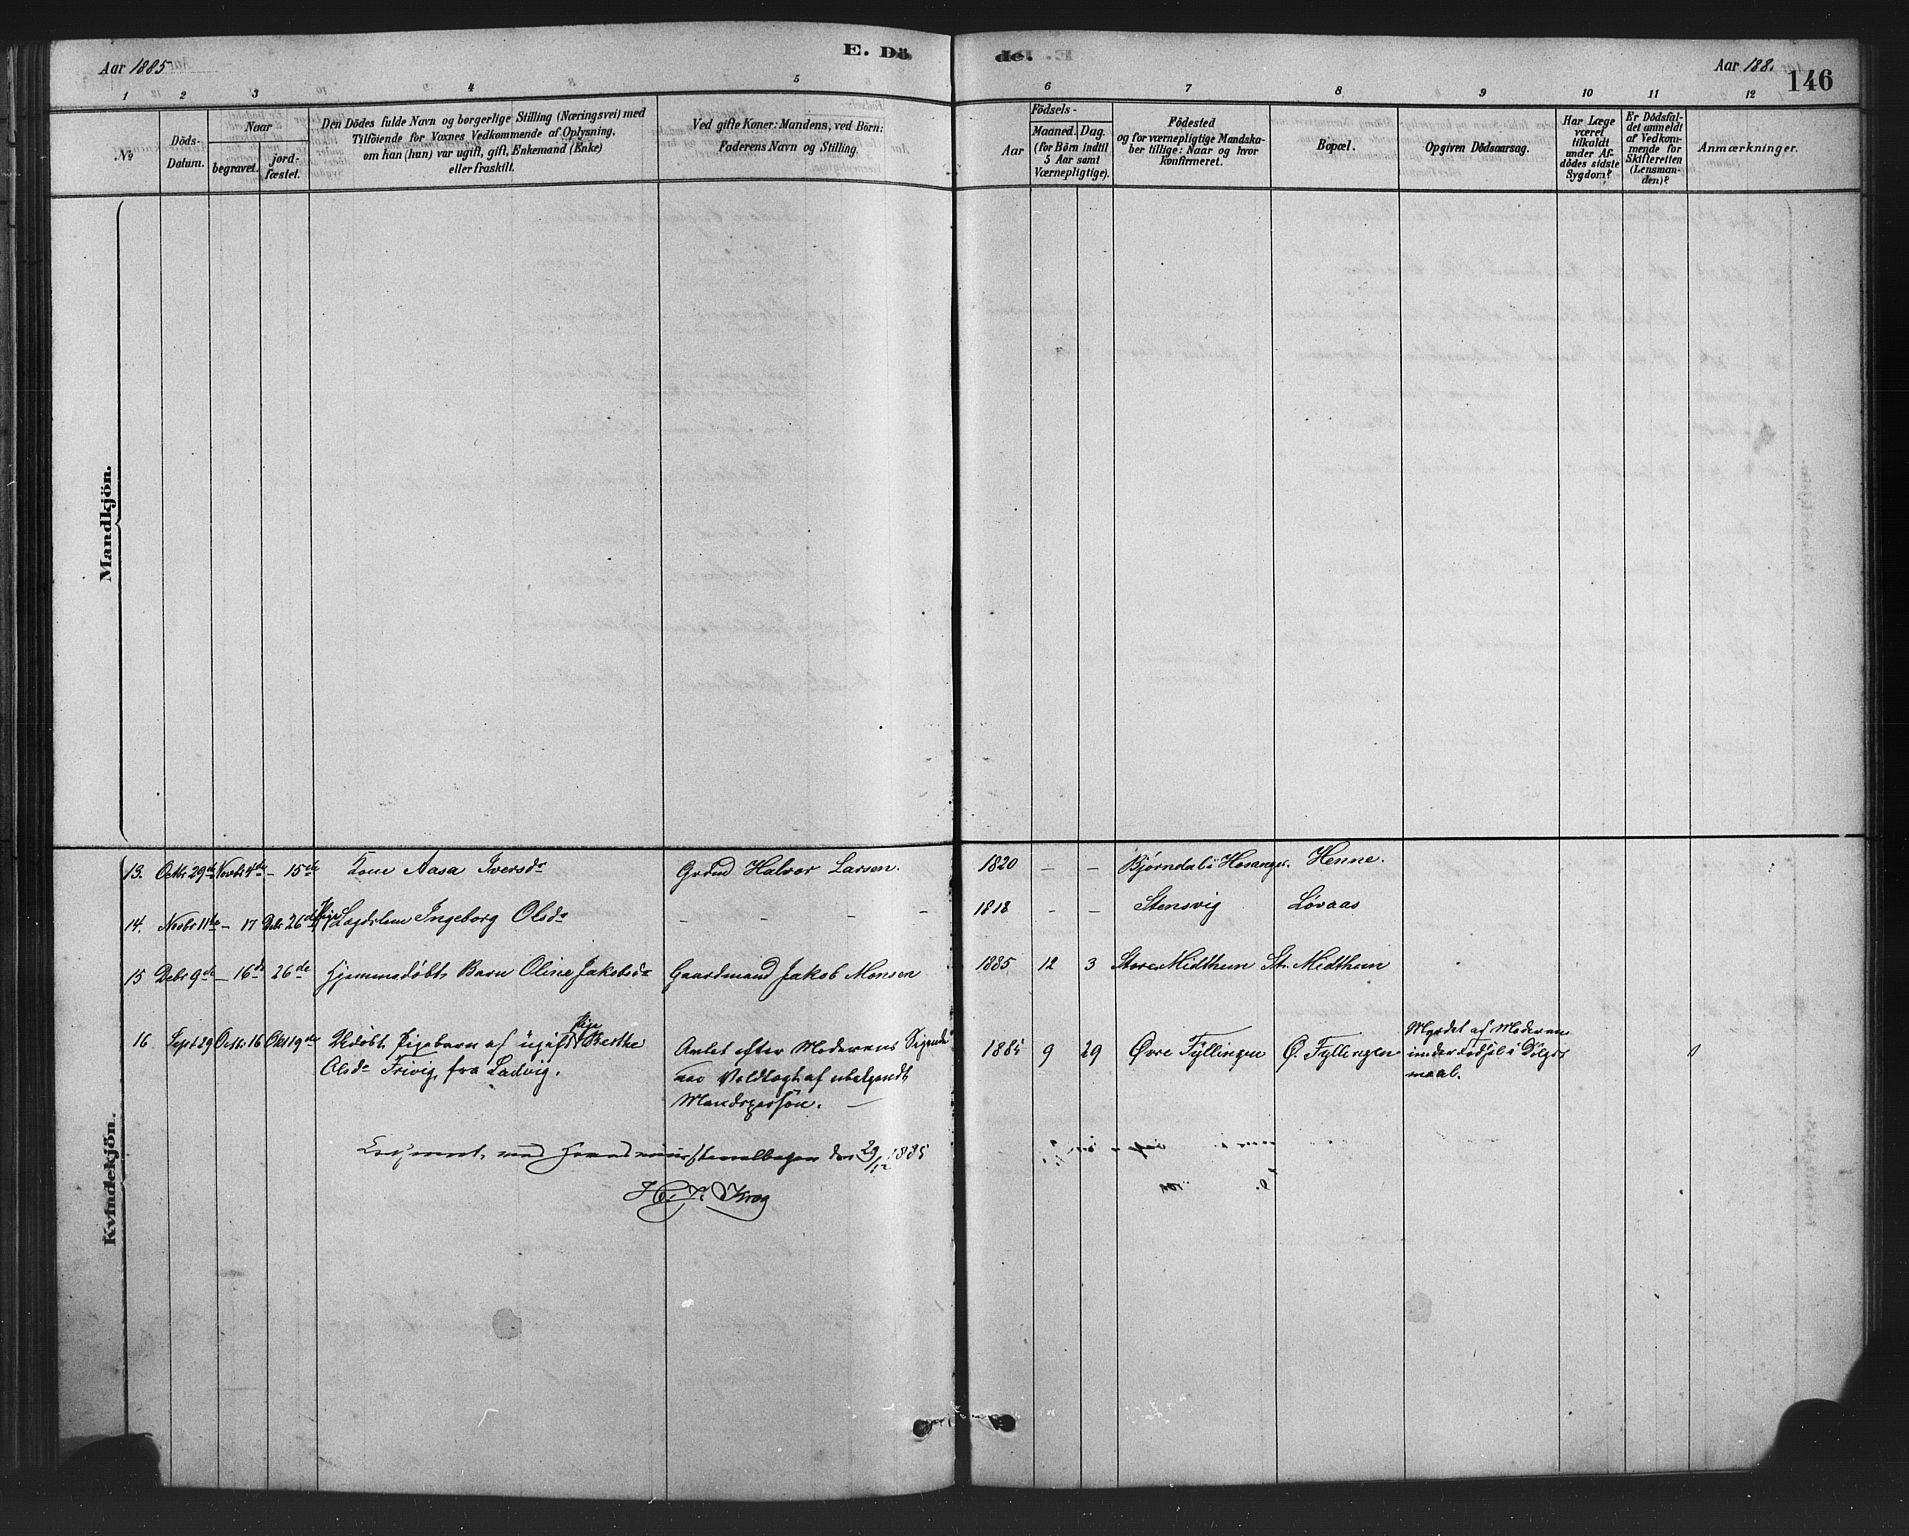 Aar 1885
E. Dö
de.
Aar 188
146
1 2 3 4 5 6 7 8 9 10 11 12
№
Döds-
Datum.
Naar
begravet.
jord-
fæstet.
Den Dödes fulde Navn og borgerlige Stilling (Næringsvei) med
Tilföiende for Voxnes Vedkommende af Oplysning,
om han (hun) var ugift, gift, Enkemand (Enke)
eller fraskilt.
Ved gifte Koner: Mandens, ved Börn:
Faderens Navn og Stilling.
Födsels-
Aar
Maaned. Dag.
(for Börn indtil
5 Aar samt
Værnepligtige).
Födested
og for værnepligtige Mandska-
ber tillige: Naar og hvor
Konfirmeret.
Bopæl.
Opgiven Dödsaarsag.
Har Læge
været
tilkaldt
under Af-
dödes sidste
Sygdom?
Er Dödsfal-
det anmeldt
af Vedkom-
mende for
Skifteretten
(Lensman-
den)?
Anmærkninger.
Mandkjön.
Kvindekjön.
13. Octbr 29de Novbr 4de – 15de Kone Aasa Iversdr Grdmd Halvor Larsen. 1820 – – Bjørndal i Hosanger. Henne.
14. Novbr 11te – 17 Debr 26de Pige Ingeborg Olsdr – – – – 1818 – – Stensvig Løvaas
15 Debr 9de – 16de 26de Hjemmedøbt Barn Oline Jakobsdr Gaardmand Jakob Monsen 1885 12 3 Store Midthun St. Midthun
16 Sept 29 Octbr 16 Okt 19de Udøbt Pigebarn af ugift Pige Berthe 1885 9 29 Øvre Fyllingen Ø. Fyllingen
Olsdr Trivig fra Ladvig.
Avlet efter Moderens Sigende
ved Voldtægt af ubekjendt
Mandsperson. –
Myrdet af Moderen
under Fødsel i Dølgs-
maal.
med den 29/12 1885
Krog